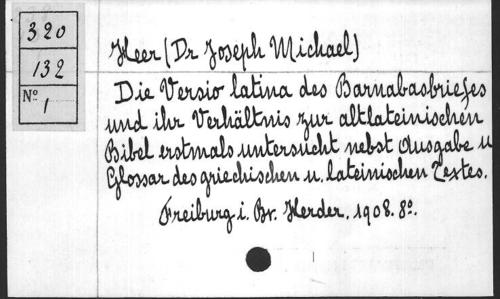 320
132
Nº 1
Heer (Dr Joseph Michael)
Die Versio latina des Barnabasbriefes
und ihr Verhältnis zur altlateinischen
Bibel erstmals untersucht nebst Ausgabe u
Glossar des griechischen u. lateinischen Textes.
Freiburg i. Br. Herder. 1908. 8º.